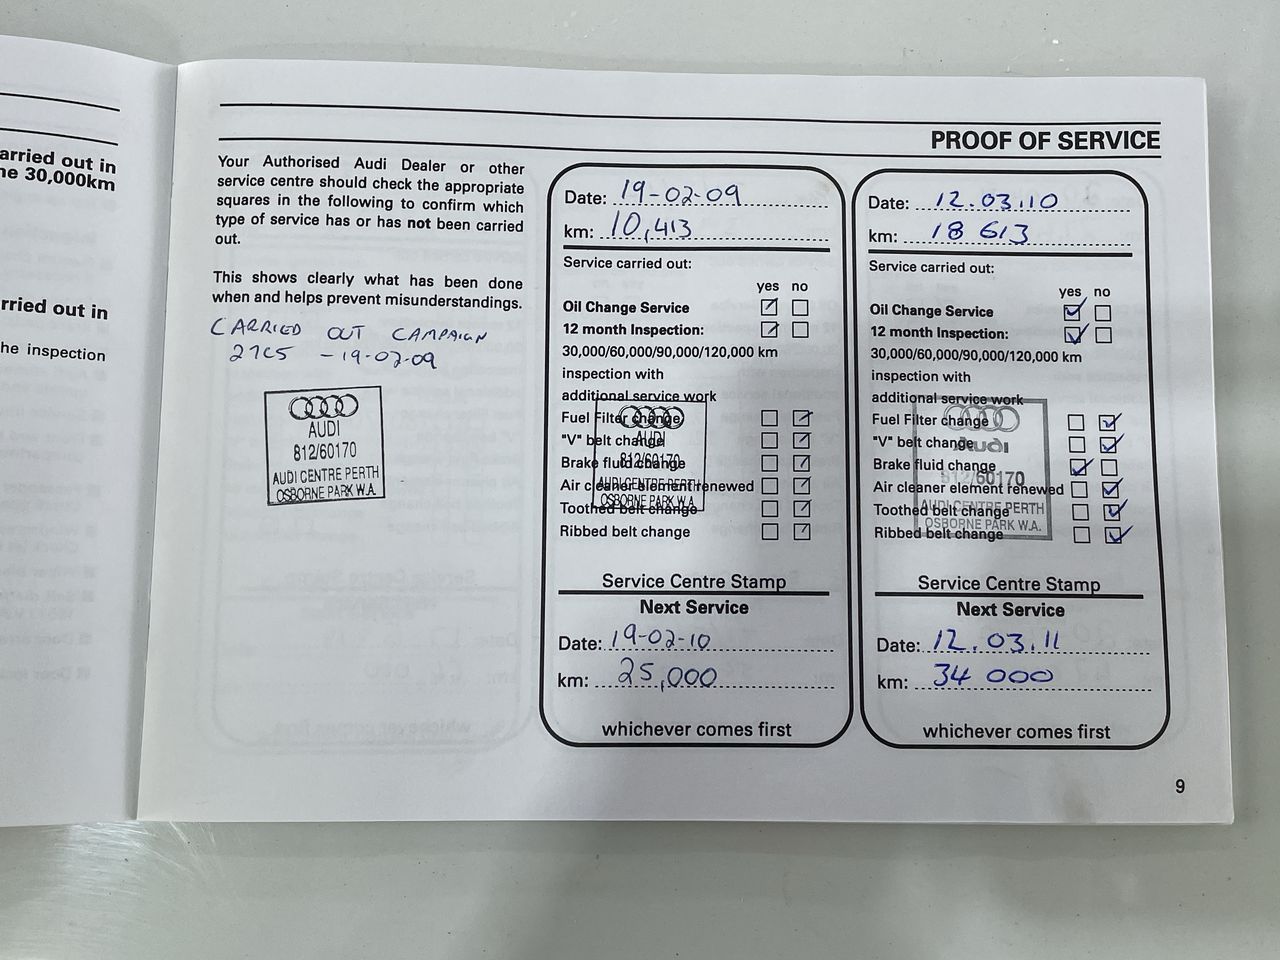 arried out in
ne 30,000km
rried out in
he inspection
PROOF OF SERVICE
Your Authorised Audi Dealer or other
service centre should check the appropriate
squares in the following to confirm which
type of service has or has not been carried
out.
This shows clearly what has been done
when and helps prevent misunderstandings.
CARRIED OUT CAMPAIGN
27C5 - 19-02-09
AUDI
812/60170
AUDI CENTRE PERTH
OSBORNE PARK W.A.
Date: 19-02-09
km: 10,413
Service carried out:
yes no
Oil Change Service
12 month Inspection:
30,000/60,000/90,000/120,000 km
inspection with
additional service work
Fuel Filter change
"V" belt change
Brake fluid change
Air cleaner element renewed
Toothed belt change
Ribbed belt change
AUDI
812/60170
AUDI CENTRE PERTH
OSBORNE PARK W.A.
Service Centre Stamp
Next Service
Date: 19-02-10
km: 25,000
whichever comes first
Date: 12.03.10
km: 18 613
Service carried out:
yes no
Oil Change Service
12 month Inspection:
30,000/60,000/90,000/120,000 km
inspection with
additional service work
Fuel Filter change
"V" belt change
Brake fluid change
Air cleaner element renewed
Toothed belt change
Ribbed belt change
Audi
812/60170
AUDI CENTRE PERTH
OSBORNE PARK W.A.
Service Centre Stamp
Next Service
Date: 12.03.11
km: 34 000
whichever comes first
9